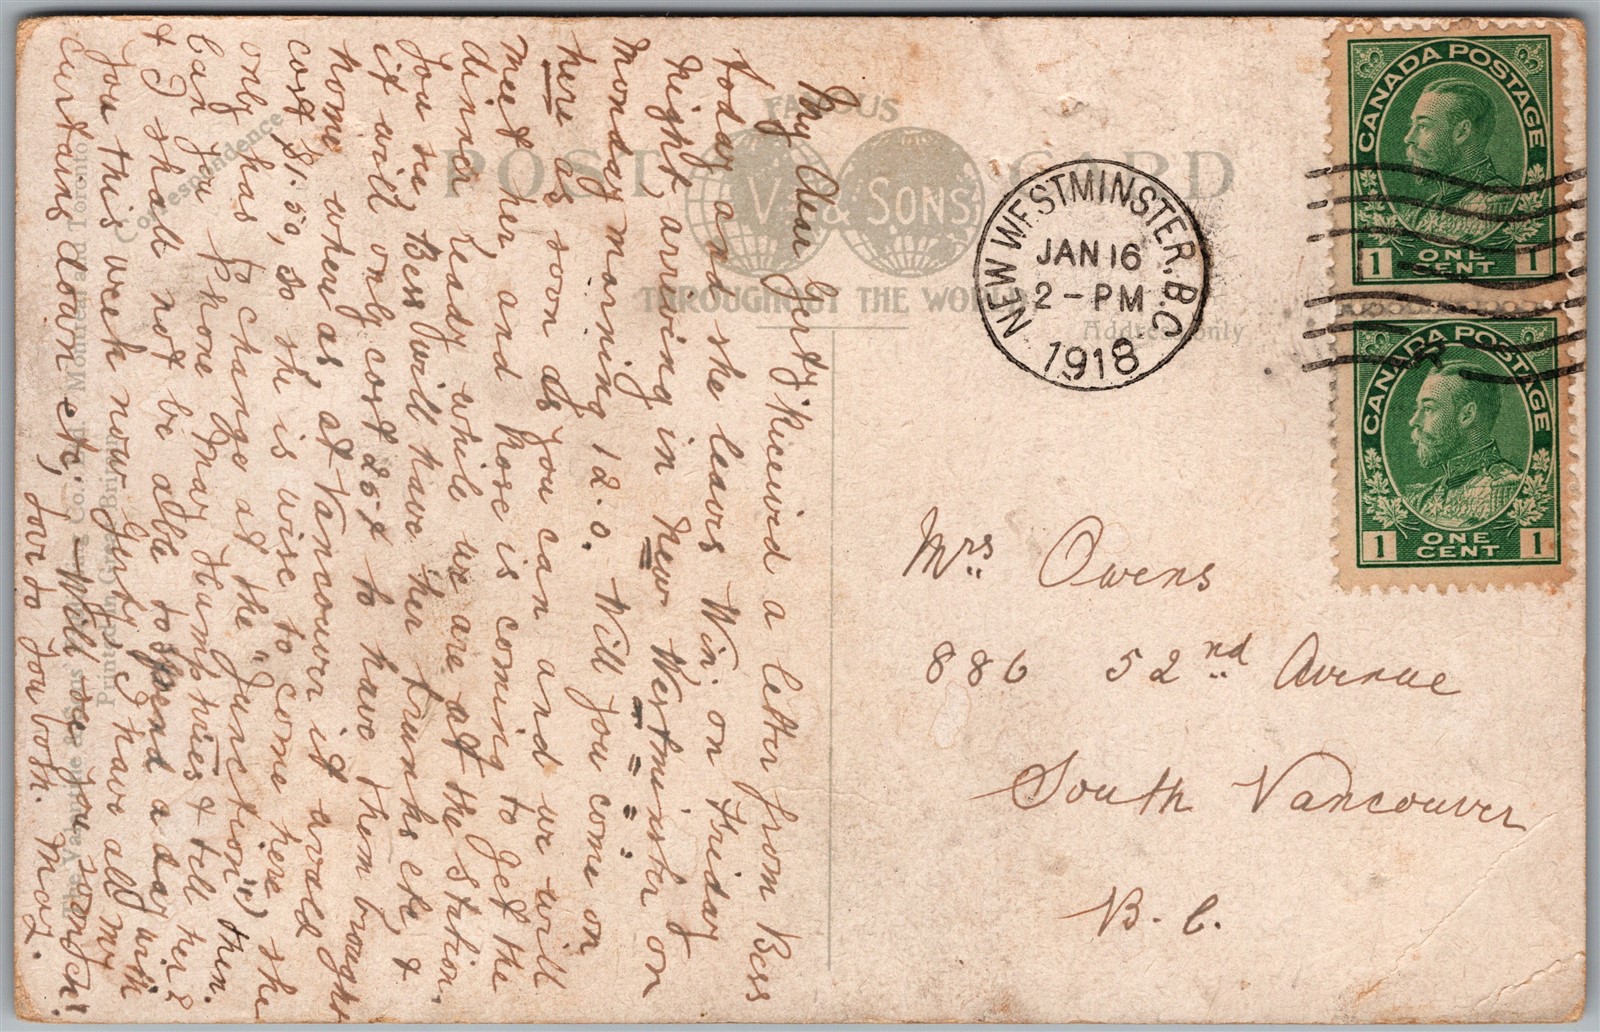 FAMOUS
POST CARD
V. & SONS
THROUGHOUT THE WORLD
Correspondence
Address only
The Valentine & Sons' Co., Ltd. Montreal and Toronto
Printed in Great Britain
My dear Gerty Received a letter from Bess
today and she leaves Win. on Friday
night, arriving in New Westminster on
Monday morning 12.0. Will you come on
here as soon as you can and we will
meet her, and Rose is coming to get the
dinner ready while we are at the Station.
You see, Bess will have her trunks etc, &
it will only cost 25¢ to have them brought
home, where as, at Vancouver it would
cost $1.50, so she is wise to come here, she
only has to change at the "Junction") then.
Can you Phone Mrs Humphries & tell her?
& I shall not be able to spend a day with
you this week now Gerty. I have all my
curtains down etc, - Will see you soon
love to you both. May.
NEW WESTMINSTER. B.C.
JAN 16
2 - PM
1918
CANADA POSTAGE
1 ONE CENT 1
CANADA POSTAGE
1 ONE CENT 1
Mrs Owens
886 52nd Avenue
South Vancouver
B. C.